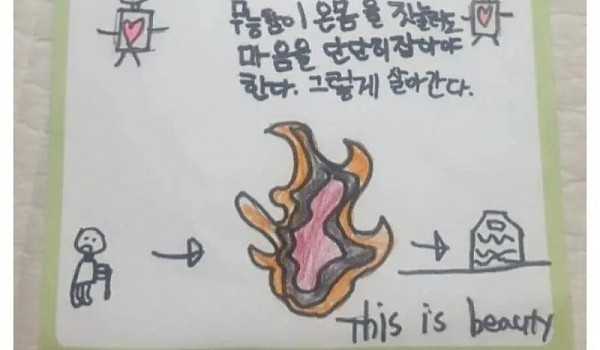 무능함이 온몸을 짓눌러도
마음을 단단히잡아야
한다. 그렇게 살아간다.
This is beauty